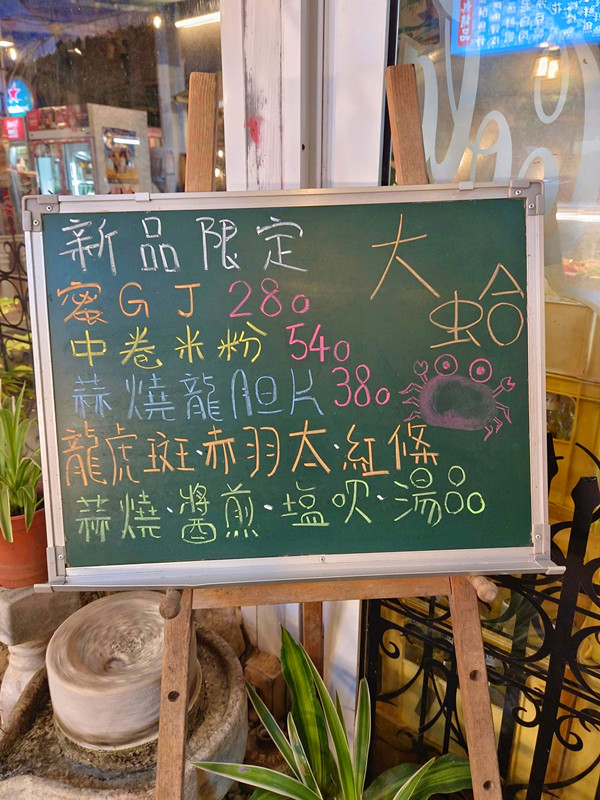 新品限定
大蛤
蜜GJ 280
中卷米粉 540
蒜燒龍胆尺 380
龍虎斑·赤羽太·紅條
蒜燒·醬煎·塩吹·湯品